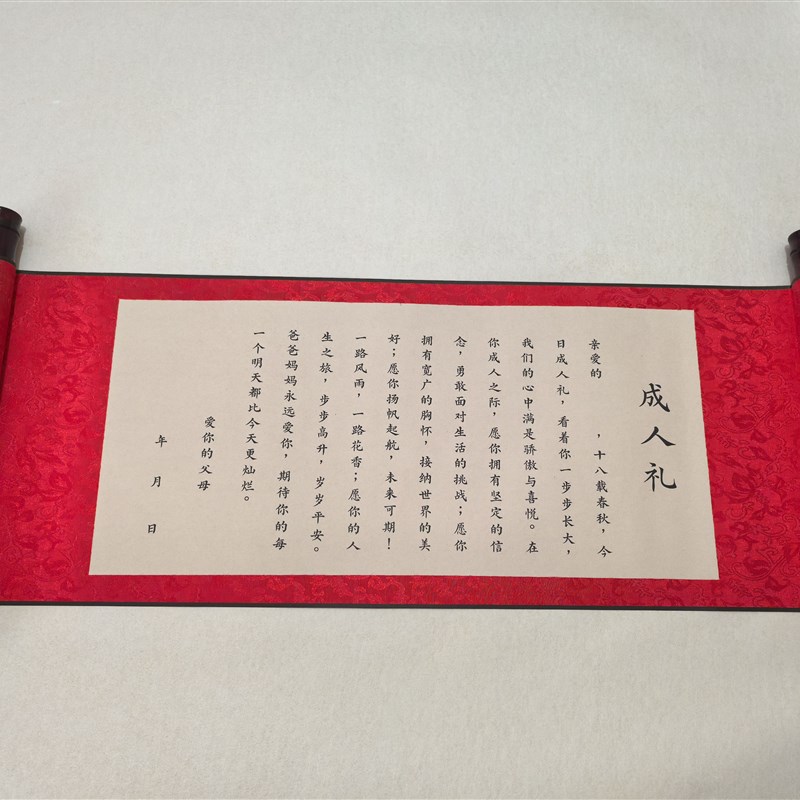 成人礼
亲爱的　　，十八载春秋，今
日成人礼，看着你一步步长大，
我们的心中满是骄傲与喜悦。在
你成人之际，愿你拥有坚定的信
念，勇敢面对生活的挑战；愿你
拥有宽广的胸怀，接纳世界的美
好；愿你扬帆起航，未来可期！
一路风雨，一路花香；愿你的人
生之旅，步步高升，岁岁平安。
爸爸妈妈永远爱你，期待你的每
一个明天都比今天更灿烂。
爱你的父母
年 月 日